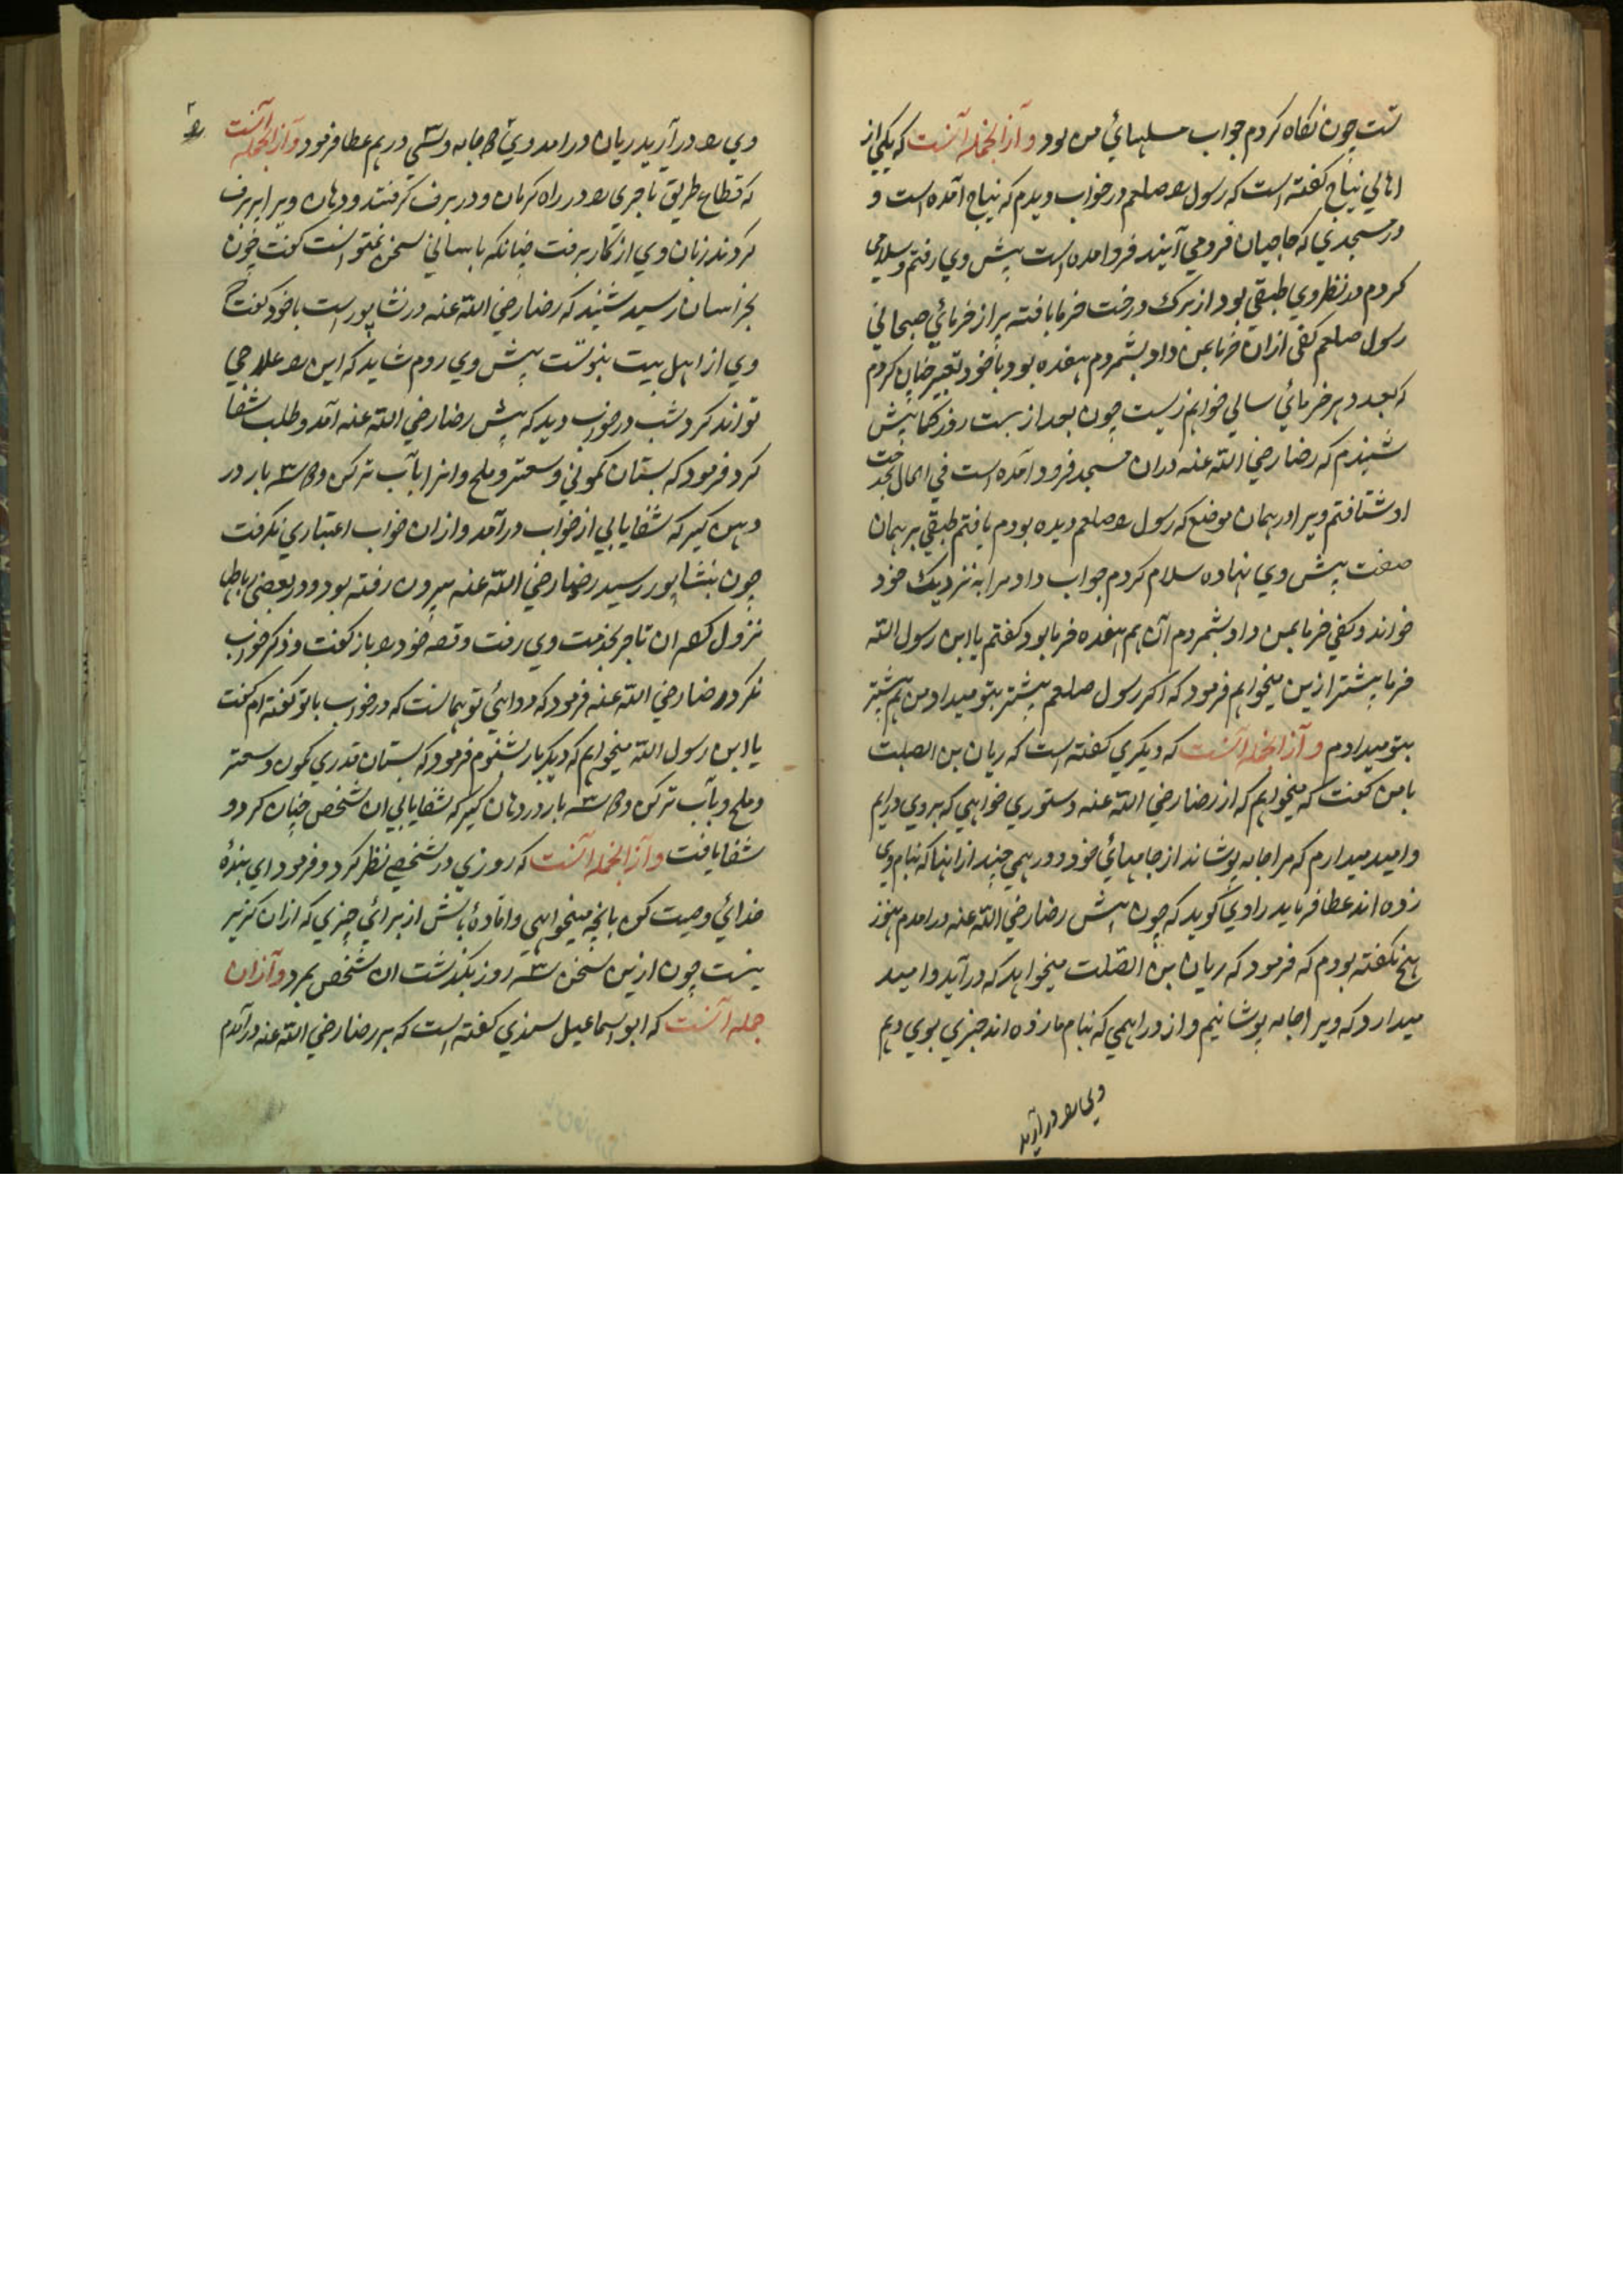 تست چون نگاه کردم جواب مسلهائی من بود و از آنجمله آنست که یکی از
اهالی نیاج گفته است که رسول را صلعم در خواب دیدم که بنیاج آمده است و
در مسجدی که حاجیان فرومی آیند فروامده است پیش وی رفتم و سلامی
کردم در نظر وی طبقی بود از برک درخت خرما بافته پر از خرمائی صیحانی
رسول صلعم کفی ازان خرما بمن داد بشمردم هفده بود با خود تعبیر چنان کردم
که بعدد هر خرمائی سالی خواهم زیست چون بعد از بست روز کما بیش
شنیدم که رضا رضی الله عنه دران مسجد فرود آمده است فی الحال بخدمت
او شتافتم ویرا در همان موضع که رسول را صلعم دیده بودم یافتم طبقی بر همان
صفت پیش وی نهاده سلام کردم جواب داد مرا به نزدیک خود
خواند و کفی خرما بمن داد بشمردم آن هم هفده خرما بود کفتم یا ابن رسول الله
خرما بیشتر ازین میخواهم فرمود که اکر رسول صلعم بیشتر بتو میداد من هم بیشتر
بتو میدادم و از آنجمله آنست که دیکری کفته است که ریان بن الصلت
با من کفت که میخواهم که از رضا رضی الله عنه دستوری خواهی که بر وی درایم
و امید میدارم که مرا جامه پوشاند از جامهائی خود و درهمی چند از انها که بنام وی
زده اند عطا فرماید راوی کوید که چون پیش رضا رضی الله عنه درامدم هنوز
هیچ نکفته بودم که فرمود که ریان بن الصلت میخواهد که درآید و امید
میدارد که ویرا جامه پوشانیم و از دراهمی که بنام ما زده اند چیزی بوی دهم
وی را در آرید
وی را در آرید ریان درامد وی را جامه و سی درهم عطا فرمود و از انجمله آنست
که قطاع طریق تاجری را در راه کرمان در برف کرفتند و دهان ویرا پر برف
کردند زبان وی از کار برفت چنانکه باسانی سخن نمیتوانست کفت چون
بخراسان رسید شنید که رضا رضی الله عنه در نشاپور است با خود کفت که
وی از اهل بیت نبوتست پیش وی روم شاید که این را علاجی
تواند کرد شب در خواب دید که پیش رضا رضی الله عنه آمد و طلب شفا
کرد فرمود که بستان کمونی و سعتر و ملح و انرا باب تر کن و دو سه بار در
دهن کیر که شفا یابی از خواب درآمد و ازان خواب اعتباری نکرفت
چون بنشاپور رسید رضا رضی الله عنه بیرون رفته بود و در بعضی رباطها
نزول کرده ان تاجر بخدمت وی رفت و قصه خود را باز کفت و ذکر خواب
نکرد رضا رضی الله عنه فرمود که دوائی تو همانست که در خواب با تو کفته ام کفت
یا ابن رسول الله میخواهم که دیکر بار شنوم فرمود که بستان قدری کمون و سعتر
و ملح و بآب تر کن و دو سه بار در دهان کیر که شفا یابی ان شخص چنان کرد و
شفا یافت و از انجمله آنست که روزی در شخصی نظر کرد و فرمود ای بنده
خدائی وصیت کن بانچه میخواهی و اماده باش از برائی چیزی که ازان کزیر
نیست چون ازین سخن سه روز بکذشت ان شخص بمرد و ازان
جمله آنست که ابو اسماعیل سندی کفته است که بر رضا رضی الله عنه درآمدم